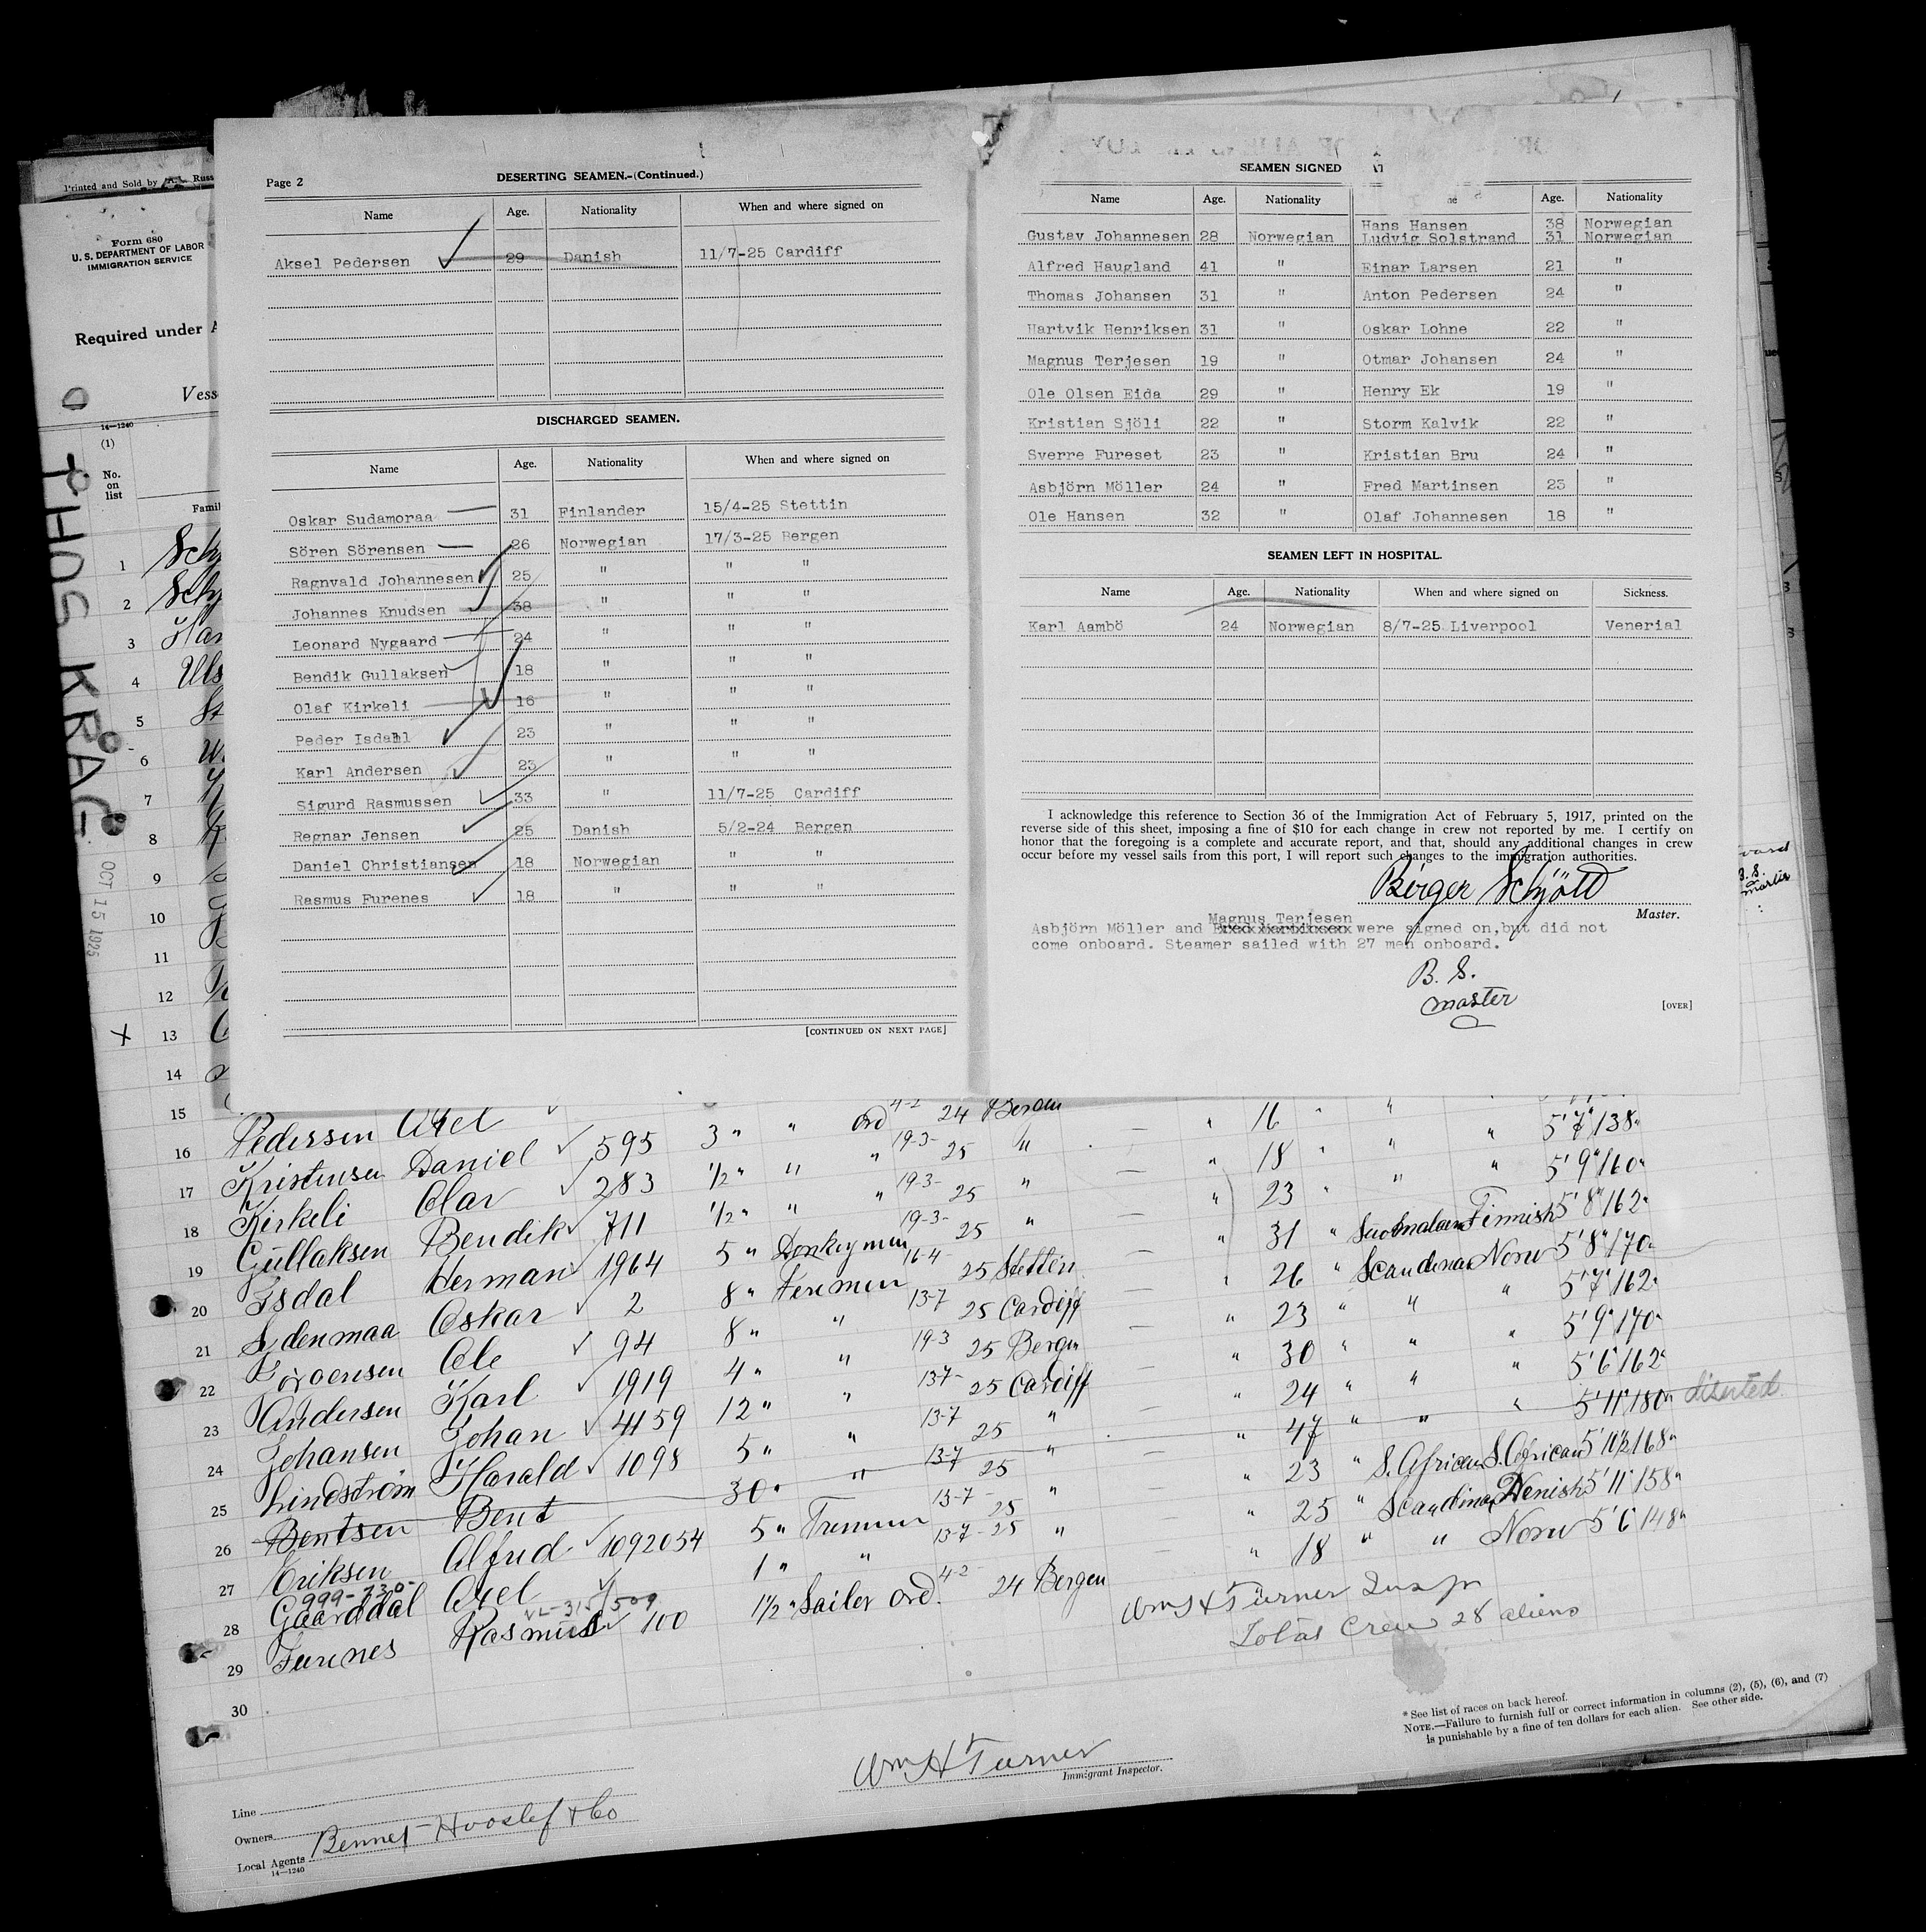 Printed and Sold by A. L. Russ
Form 680
U. S. DEPARTMENT OF LABOR
IMMIGRATION SERVICE
Required under A
Vess
14—1240
(1)
No.
on
list
Famil
THOS KRAG
OCT 15 1925
Page 2
DESERTING SEAMEN.-(Continued.)
Name Age. Nationality When and where signed on
Aksel Pedersen 29 Danish 11/7-25 Cardiff
DISCHARGED SEAMEN.
Name Age. Nationality When and where signed on
Oskar Sudamoraa 31 Finlander 15/4-25 Stettin
Sören Sörensen 26 Norwegian 17/3-25 Bergen
Ragnvald Johannesen 25 " " "
Johannes Knudsen 38 " " "
Leonard Nygaard 24 " " "
Bendik Gullaksen 18 " " "
Olaf Kirkeli 16 " " "
Peder Isdahl 23 " " "
Karl Andersen 23 " " "
Sigurd Rasmussen 33 " 11/7-25 Cardiff
Regnar Jensen 25 Danish 5/2-24 Bergen
Daniel Christiansen 18 Norwegian " "
Rasmus Furenes 18 " " "
[CONTINUED ON NEXT PAGE]
SEAMEN SIGNED
Name Age. Nationality Age. Nationality
Hans Hansen 38 Norwegian
Gustav Johannesen 28 Norwegian Ludvig Solstrand 31 Norwegian
Alfred Haugland 41 " Einar Larsen 21 "
Thomas Johansen 31 " Anton Pedersen 24 "
Hartvik Henriksen 31 " Oskar Lohne 22 "
Magnus Terjesen 19 " Otmar Johansen 24 "
Ole Olsen Eida 29 " Henry Ek 19 "
Kristian Sjöli 22 " Storm Kalvik 22 "
Sverre Fureset 23 " Kristian Bru 24 "
Asbjörn Möller 24 " Fred Martinsen 23 "
Ole Hansen 32 " Olaf Johannesen 18 "
SEAMEN LEFT IN HOSPITAL.
Name Age. Nationality When and where signed on Sickness.
Karl Aambö 24 Norwegian 8/7-25 Liverpool Venerial
I acknowledge this reference to Section 36 of the Immigration Act of February 5, 1917, printed on the
reverse side of this sheet, imposing a fine of $10 for each change in crew not reported by me. I certify on
honor that the foregoing is a complete and accurate report, and that, should any additional changes in crew
occur before my vessel sails from this port, I will report such changes to the immigration authorities.
Birger Schjött
Master.
Magnus Terjesen
Asbjörn Möller and were signed on,but did not
come onboard. Steamer sailed with 27 men onboard.
B. S.
master
[OVER]
B. S.
master
1
2
3
4
5
6
7
8
9
10
11
12
X 13
14
15
16 Pedersen Axel 4-2 24 Bergen 16 " " "
17 Kristensen Daniel 595 3 " " ord 19-3-25 " — " 18 " " " 5'7" 138"
18 Kirkeli Olav 283 1/2 " " " 19-3-25 " — " 23 " " " 5'9" 160"
19 Gullaksen Bendik 711 1/2 " " " 19-3-25 " — " 31 " Finnish 5'8" 162"
20 Isdal Herman 1964 5 " Donkeyman 16-4-25 Stettin — " 26 " Scandinav Norw 5'8" 170"
21 Oskar 2 8 " Firemen 13-7 25 Cardiff — " 23 " " " 5'7" 162"
22 Ole 94 8 " " 19-3 25 Bergen — " 30 " " " 5'9" 170"
23 Andersen Karl 1919 4 " " 13-7-25 Cardiff — " 24 " " " 5'6" 162"
24 Johansen Johan 4159 12 " " 13-7 25 " — " 47 " " " 5'11" 180" diserted
25 Lindström Harald 1098 5 " " 13-7 25 " — " 23 " S. African S. African 5'10½ 168"
26 Bentsen Bent 30 " " 13-7-25 " — " 25 " Scandinav 5'11" 158"
27 Eriksen Alfred 1092054 5 " 13-7-25 " — " 18 " " Norw 5'6" 148"
999-730-
28 Gaarddal Axel 1 " "
29 Furenes Rasmus 100 1½ " Sailer ord. 4-2 24 Bergen
30
Wm H Turner Insp
Total Crew 28 aliens
* See list of races on back hereof.
NOTE.—Failure to furnish full or correct information in columns (2), (5), (6), and (7)
is punishable by a fine of ten dollars for each alien. See other side.
Wm H Turner
Immigrant Inspector.
Line
Owners
Local Agents Bennet Hvoslef & Co
14—1240